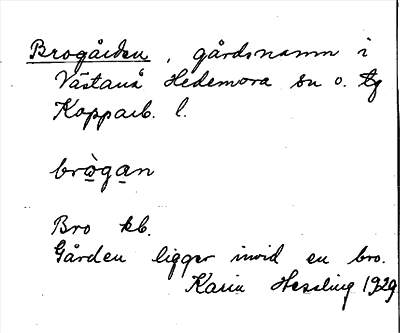 Brogården, gårdsnamn i
Västanå Hedemora sn o. tg
Kopparb. l.
brò̲ga̲n
Bro kb.
Gården ligger invid en bro.
Karin Hessling 1929